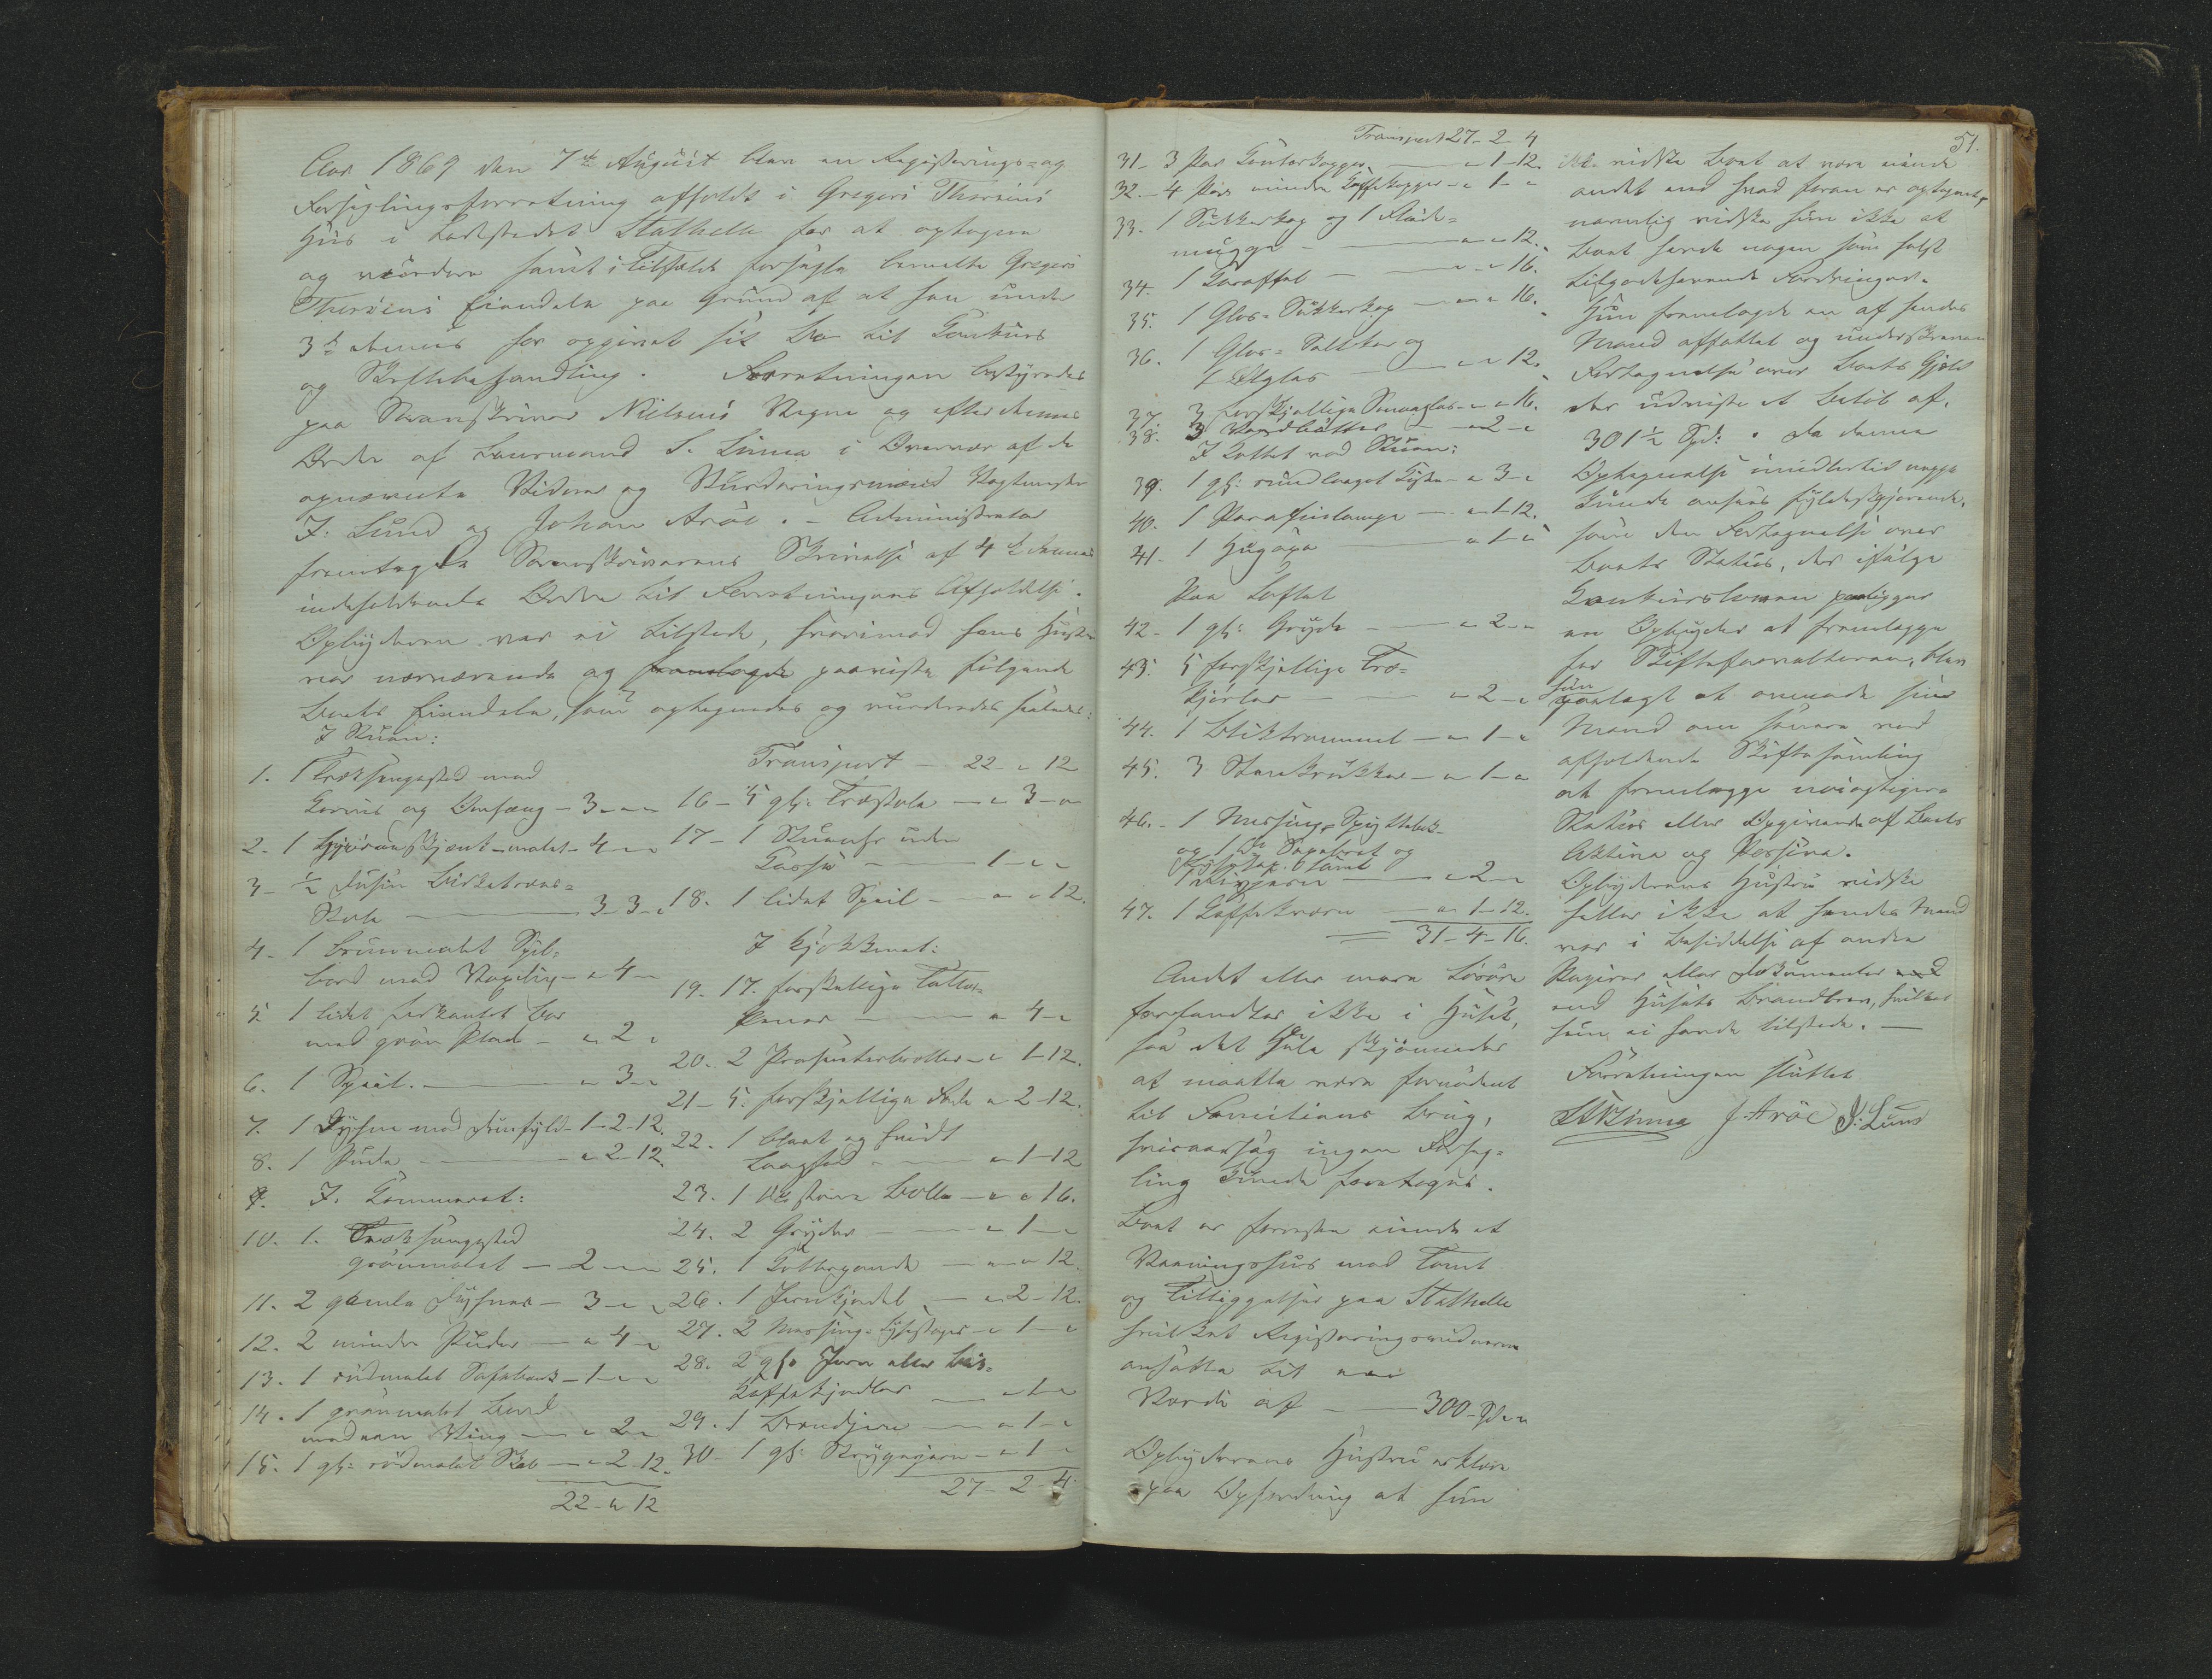 Aar 1869 den 7de August blev en Registerings- og
Forseglingsforretning afholdt i Gregers Thorsens
Hus i Ladestedet Stathelle for at optegne
og vurdere samt i Tilfælde forsegle bemeldte Gregers
Thorsens Eiendele paa Grund af at han under
3die dennes har opgivet sit Bo til Concurs
og Skiftebehandling. Forretningen bestyredes
paa Sorenskriver Nielsens Vegne og efter dennes
Ordre af Lensmand S. Linna i Overvær af de
opnævnte Vidner og Vurderingsmænd
J. Lund og Johan Arøe. - Administrator
fremlagde Sorenskriverens Skrivelse af 4de dennes
indeholdende Ordre til Forretningens Afholdelse.
Opbyderen var ei tilstede, hvorimod hans Hustru
var nærværende og fremlagde paaviste følgende
Boets Eiendele, som optegnedes og vurderedes saaledes:
I Stuen:
1. 1 Træksengested med
Omhæng - 3 - " - "
2. 1 malet - 4 - " - "
3 - ½ Dusin Birketræes=
Stole - 3 - 3 - "
4 - 1 brunmalet Spil=
bord med Voxdug - " 4 - "
5 1 lidet firkantet Bor
med grøn Plade - " 2 "
6. 1 Speil. - " 3 - "
7. 1 Dyhne med Duunfyld - 1 - 2 - 12.
8. 1 Pude - " 2 - 12.
9. I Kammeret:
10. 1. Træksengested
grønmalet - 2 - " - "
11. 2 gamle Dyhner - 3 - " - "
12. 2 mindre Puder - " 4 - "
13. 1 rødmalet Sofabænk - 1 - " - "
14. 1 grønmalet Bord
med een Ving - " 2 - "
15. 1 gl: rødmalet Skab - " 2 - 12.
22 - " 12
Transport - 22 - " 12
16 - 5 gl: Træstole - " 3 - "
17 - 1 Stueuhr uden
Casse - 1 - " - "
18. 1 lidet Speil - " - " 12.
I Kjøkkenet:
19. 17. forskellige Taller=
kener - " 4 - "
20. 2 Præsenterboller - " 1 - 12.
21 - 5. forskjellige Fade " 2 - 12.
22. 1 blaat og hvidt
- " 1 - 12
23. 1 større Bolle - " " 16.
24. 2 Gryder - " 1 - "
25. 1 - " - " 12.
26. 1 Jernkjedel - " 2 - 12.
27. 2 Messing-Lysestager - " 1 - "
28. 2 gl. Jern eller
Kaffekjedler - " 1 - "
29. 1 Brandjern - " 1 - "
30 - 1 gl: Strygejern - " 1 - "
27 - 2 - 4
51.
Transport 27 - 2 - 4
31 - 3 Par - " 1 - 12.
32. - 4 Par mindre Kaffekopper - " 1 - "
33. 1 Sukkerkop og 1 Fløde=
mugge - " " 12.
34. 1 Karaffel - " - " 16.
35. 1 Glas-Sukkerkop - " " 16.
36. 1 Glas-Saltkar og
1 Ølglas - " " 12.
37. 3 forskjellige - " " 16.
38. 3 Vandbøtter - " 2 - "
I Kottet ved Stuen:
39. 1 gl: rundlaaget Kiste - " 3 - "
40. 1 Parafinlampe - " 1 - 12.
41 - 1 Hugøxe - " 1 - "
Paa Loftet
42 - 1 gl: Gryde - " 2 - "
43. 5 forskjellige Træ=
kjørler - " 2 - "
44. 1 Bliktrommel - " 1 - "
45. 3 Steenkrukker - " 1 - "
46. - 1 Messing-Spyttebak
og 1
samt
1 - " 2 - "
47. 1 Kaffekværn - " 1 - 12.
31 - 4 - 16.
Andet eller mere Løsøre
forefandtes ikke i Huset,
saa det Hele skjønnedes
at maatte være fornødent
til Familiens Brug,
hvisaarsag ingen Forseg=
ling kunde foretages.
Boet er forresten eiende et
Vaaningshus med Tomt
og Tilliggelser paa Stathelle
hvilket Registeringsvidnerne
ansatte til en
Værdi af - 300 - Spd "
Opbyderens Hustru erklærede
paa Opfordring at hun
ikke vidste Boet at være eiende
andet end hvad foran er optegnet,
navnlig vidste hun ikke at
Boet havde nogen som helst
tilgodehavende Fordringer.
Hun fremlagde en af hendes
Mand affattet og underskreven
Fortegnelse over Boets Gjæld
der udviste et Beløb af
301½ Spd: . Da denne
Optegnelse imidlertid neppe
kunde ansees fyldestgjørende,
som den Fortegnelse over
Boets Status, der ifølge
Konkursloven paaligger
en Opbyder at fremlægge
for Skifteforvalteren, blev
hun paalagt at anmode sin
Mand om senere ved
afholdende Skiftesamling
at fremlægge nøiagtigere
Status eller Opgivende af Boets
Aktiva og Passiva.
Opbyderens Hustru vidste
heller ikke at hendes Mand
var i Besiddelse af andre
Papirer eller Dokumenter
end Husets Brandbrev, hvilket
hun ei havde tilstede. -
Forretningen sluttet
SLinna J. Arøe J: Lund